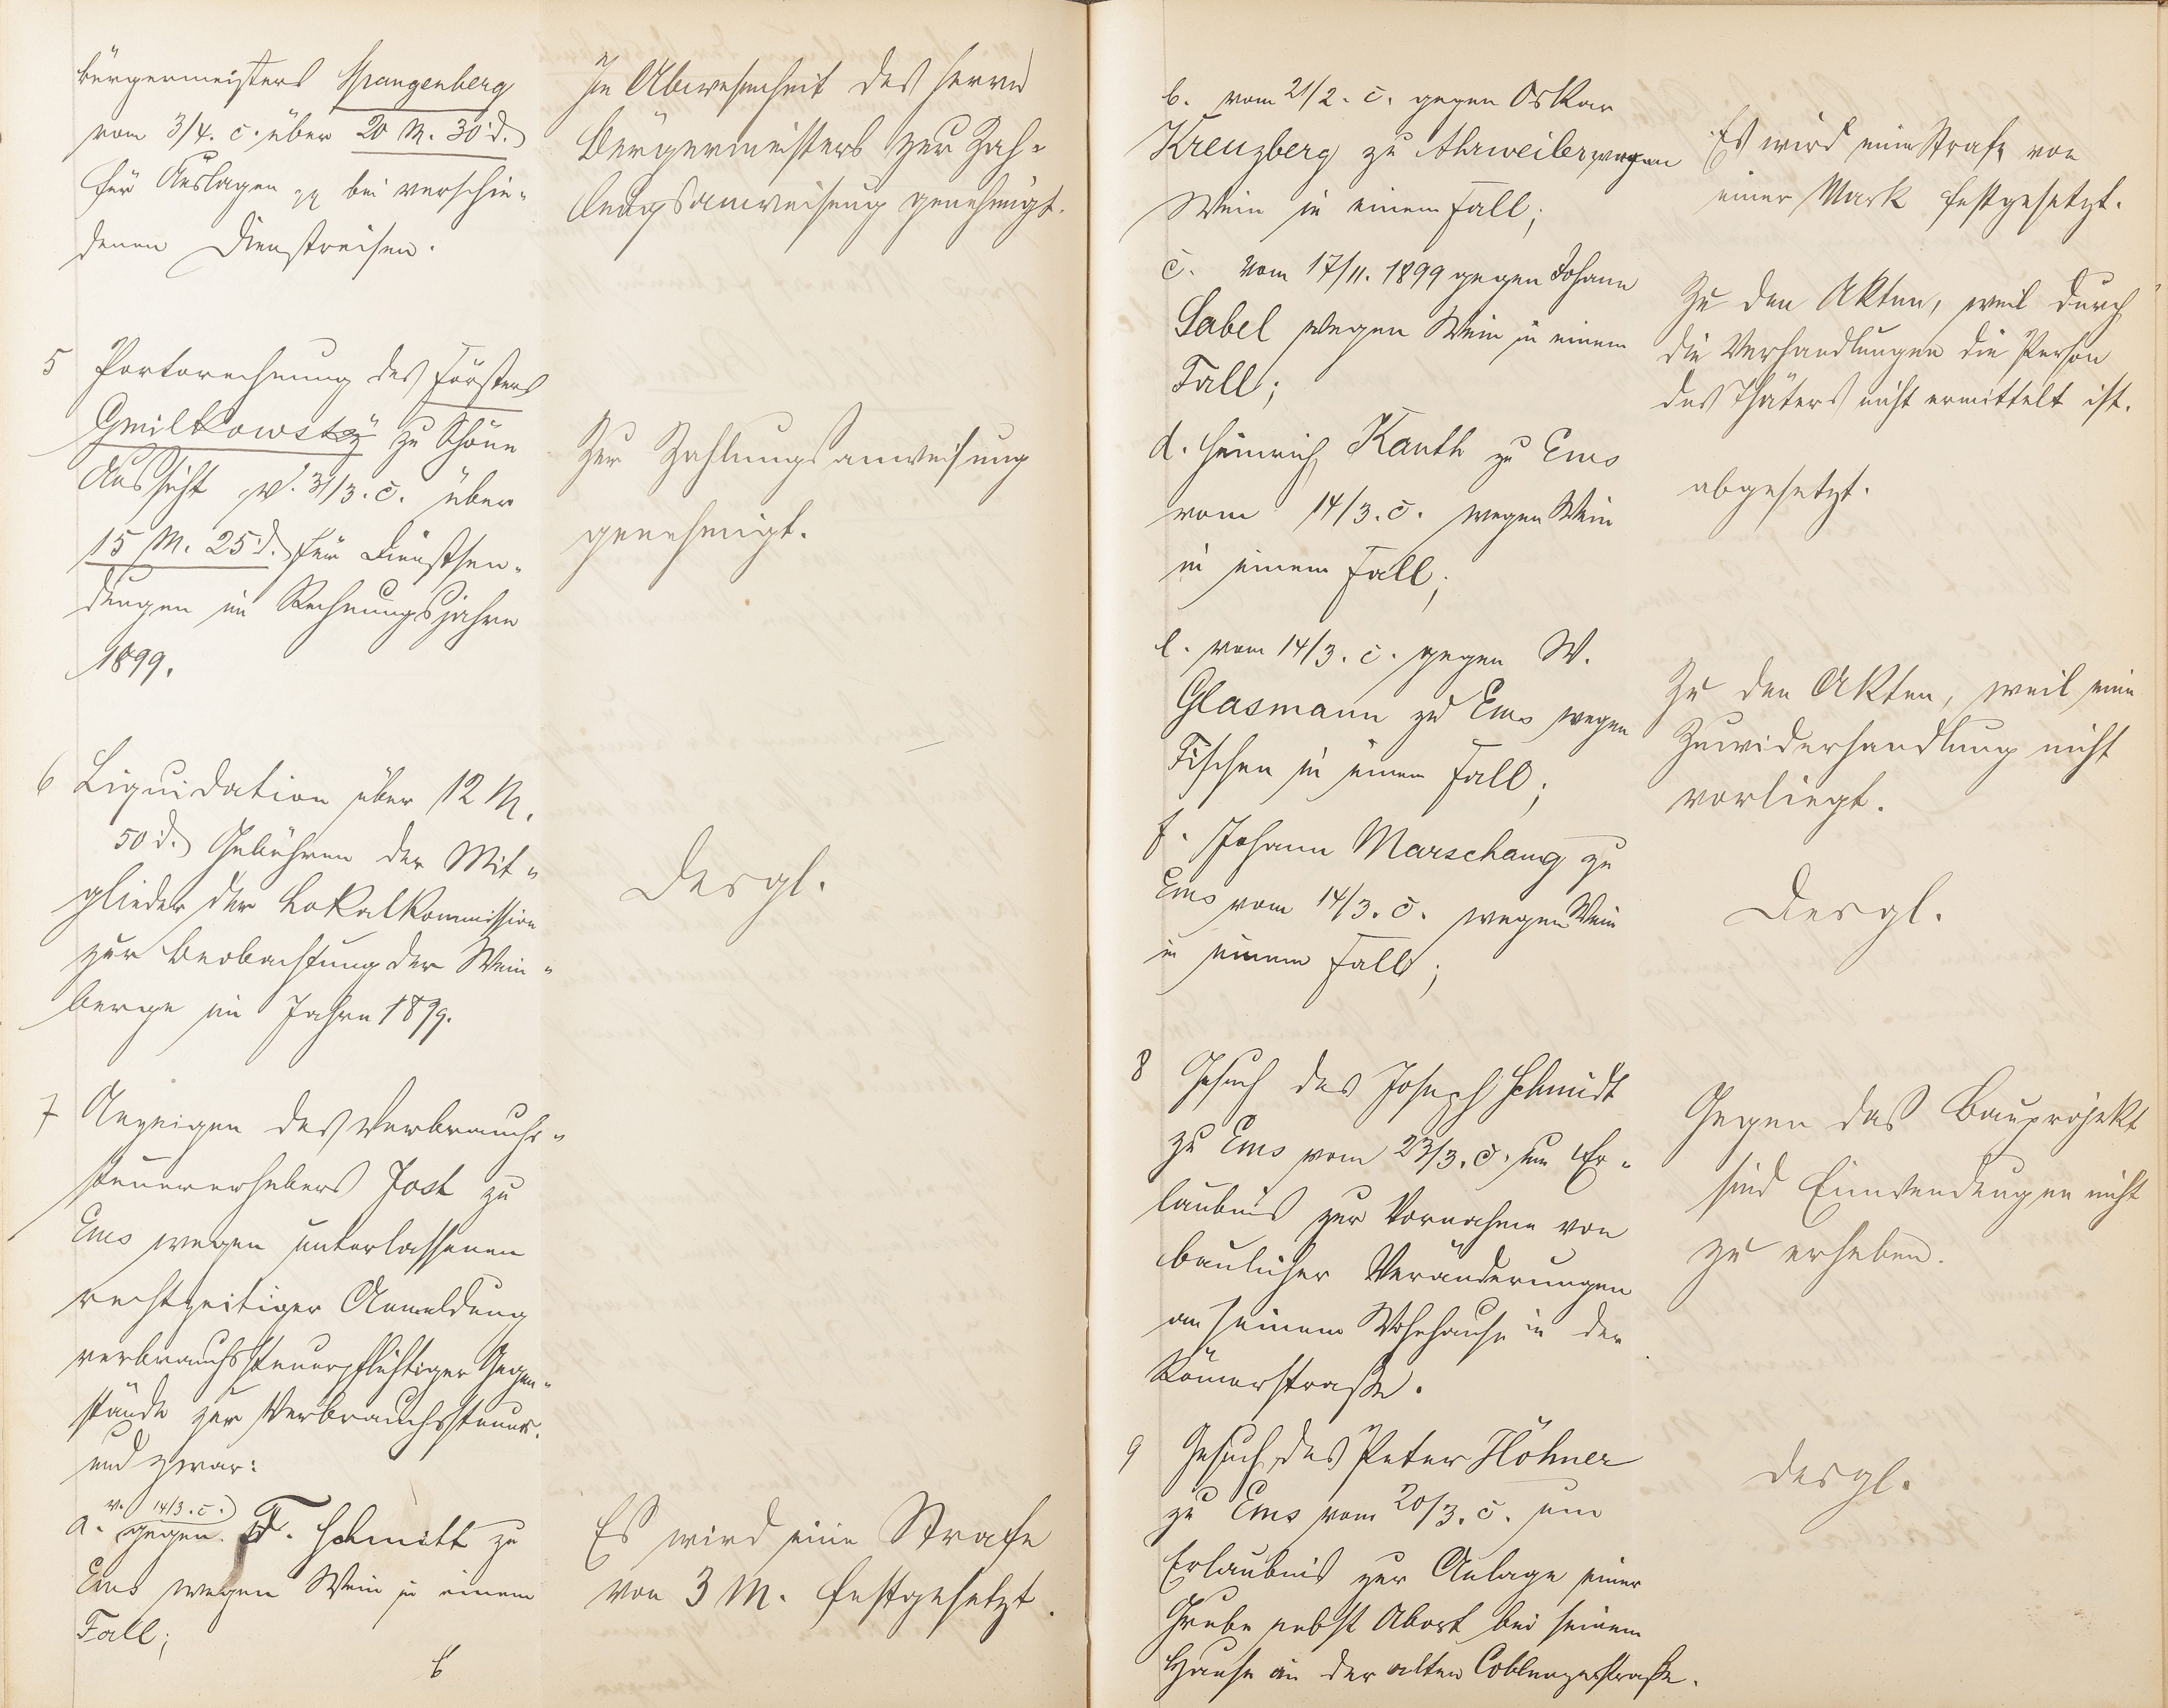 bürgermeisters Spangenberg
vom 3/4. c. über 20 M. 30 d.
für Auslagen pp bei verschie-
denen Dienstreisen.
In Abwesenheit des Herrn
Bürgermeisters zur Zah-
lungsanweisung genehmigt.
5 Portorechnung des Försters
Gmilkowsky zu Schöne
Aussicht v. 31/3. c. über
15 M. 25 d. für Dienstsen-
dungen im Rechnungsjahre
1899.
Zur Zahlungsanweisung
genehmigt.
6 Liquidation über 12 M.
50 d. Gebühren der Mit-
glieder der Lokalkommission
zur Beobachtung der Wein-
berge im Jahre 1899.
Desgl.
7 Anzeigen des Verbrauchs-
steuererhebers Jost zu
Ems wegen unterlassenen
rechtzeitiger Anmeldung
verbrauchssteuerpflichtiger Gegen-
stände zur Verbrauchssteuer.
und zwar:
v. 14/3. c.
a. gegen F. Schmitt zu
Ems wegen Wein in einem
Fall;
Es wird eine Strafe
von 3 M. festgesetzt.
b
b. vom 21/2. c. gegen Oskar
Kreuzberg zu Ahrweiler wegen
Wein in einem Fall;
Es wird eine Strafe von
einer Mark festgesetzt.
c. vom 17/11. 1899 gegen Johann
Sabel wegen Wein in einem
Fall;
Zu den Akten, weil durch
die Verhandlungen die Person
des Thäters nicht ermittelt ist.
d. Heinrich Kauth zu Ems
vom 14/3. c. wegen Wein
in einem Fall;
abgesetzt.
e. vom 14/3. c. gegen W.
Glasmann zu Ems wegen
Fischen in einem Fall;
Zu den Akten, weil eine
Zuwiderhandlung nicht
vorliegt.
f. Johann Marschang zu
Ems vom 14/3. c. wegen Wein
in einem Fall;
Desgl.
8 Gesuch des Joseph Schmidt
zu Ems vom 23/3. c. um Er-
laubnis zur Vornahme von
baulicher Veränderungen
an seinem Wohnhause in der
Römerstraße.
Gegen das Bauprojekt
sind Einwendungen nicht
zu erheben.
9 Gesuch des Peter Höhner
zu Ems vom 20/3. c. um
Erlaubnis zur Anlage einer
Grube nebst Abort bei seinem
Hause in der alten Coblenzerstraße.
desgl.